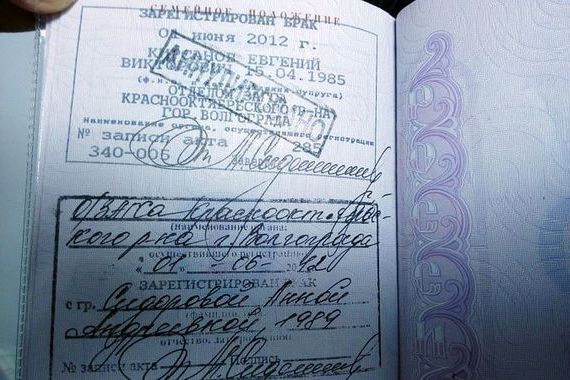 СЕМЕЙНОЕ ПОЛОЖЕНИЕ
ЗАРЕГИСТРИРОВАН БРАК
01 ИЮНЯ 2012 г.
ЕВГЕНИЙ
15.04.1985
КРАСНООКТЯБРЬСКОГО Р-НА
ГОР. ВОЛГОГРАДА
Наименование органа, осуществившего регистрацию
№ записи акта 285
340-006
О/ЗАГСа Краснооктябрьс-
кого р-на г. Волгограда
(наименование органа,
осуществившего регистрацию)
"01" - 06 - 2012
ЗАРЕГИСТРИРОВАН БРАК
с гр. Сидоровой Анной
Андреевной, 1989
№ записи акта Подпись